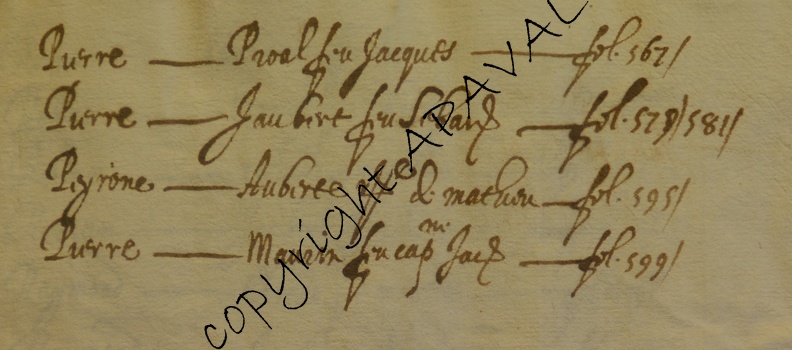 Pierre — Proal feu Jacques — fol. 567/
Pierre — Jaubert feu — fol. 579/581/
Peyrone — Auberte de mathieu — fol. 595/
Pierre — Maurin feu capne Jacq — fol. 599/
copyright APAVAL